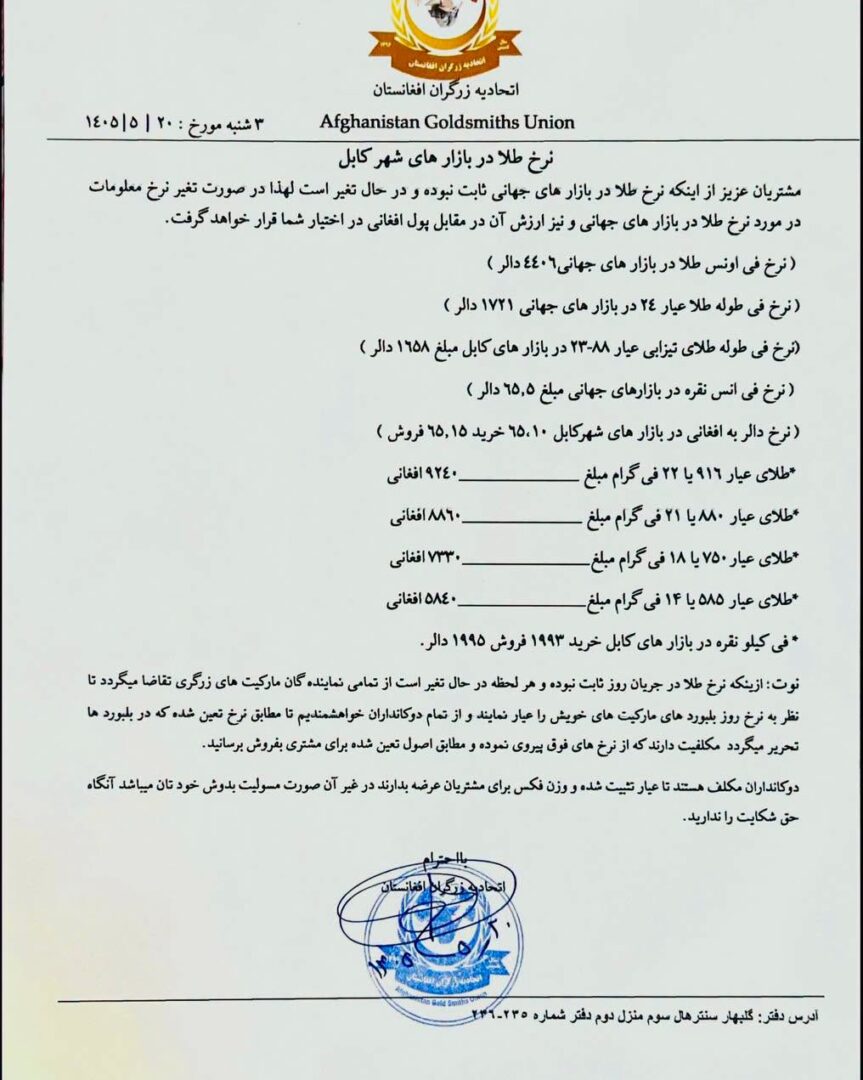 اتحادیه زرگران افغانستان
اتحادیه زرگران افغانستان
Afghanistan Goldsmiths Union
۳ شنبه مورخ : ۲۰ | ۵ | ۱٤۰۵
نرخ طلا در بازار های شهر کابل
مشتریان عزیز از اینکه نرخ طلا در بازار های جهانی ثابت نبوده و در حال تغیر است لهذا در صورت تغیر نرخ معلومات
در مورد نرخ طلا در بازار های جهانی و نیز ارزش آن در مقابل پول افغانی در اختیار شما قرار خواهد گرفت.
( نرخ فی اونس طلا در بازار های جهانی ٤٤۰٦ دالر )
( نرخ فی طوله طلا عیار ۲٤ در بازار های جهانی ۱۷۲۱ دالر )
(نرخ فی طوله طلای تیزابی عیار ۸۸-۲۳ در بازار های کابل مبلغ ۱٦۵۸ دالر )
( نرخ فی انس نقره در بازارهای جهانی مبلغ ٦۵,۵ دالر )
( نرخ دالر به افغانی در بازار های شهرکابل ٦۵،۱۰ خرید ٦۵,۱۵ فروش )
*طلای عیار ۹۱٦ یا ۲۲ فی گرام مبلغ ____________۹۲٤۰ افغانی
*طلای عیار ۸۸۰ یا ۲۱ فی گرام مبلغ ____________۸۸٦۰ افغانی
*طلای عیار ۷۵۰ یا ۱۸ فی گرام مبلغ____________۷۳۳۰ افغانی
*طلای عیار ۵۸۵ یا ۱۴ فی گرام مبلغ____________۵۸٤۰ افغانی
* فی کیلو نقره در بازار های کابل خرید ۱۹۹۳ فروش ۱۹۹۵ دالر.
نوت: ازینکه نرخ طلا در جریان روز ثابت نبوده و هر لحظه در حال تغیر است از تمامی نماینده گان مارکیت های زرگری تقاضا میگردد تا
نظر به نرخ روز بلبورد های مارکیت های خویش را عیار نمایند و از تمام دوکانداران خواهشمندیم تا مطابق نرخ تعین شده که در بلبورد ها
تحریر میگردد مکلفیت دارند که از نرخ های فوق پیروی نموده و مطابق اصول تعین شده برای مشتری بفروش برسانید.
دوکانداران مکلف هستند تا عیار تثبیت شده و وزن فکس برای مشتریان عرضه بدارند در غیر آن صورت مسولیت بدوش خود تان میباشد آنگاه
حق شکایت را ندارید.
بااحترام
اتحادیه زرگران افغانستان
Afghanistan Gold Smiths Union
آدرس دفتر: گلبهار سنترهال سوم منزل دوم دفتر شماره ۲۳۵-۲۳۶